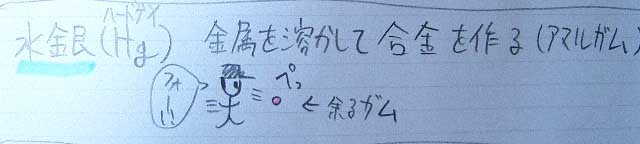 ハードゲイ
水銀(Hg) 金属を溶かして合金を作る(アマルガム)
ペッ
← 余るガム